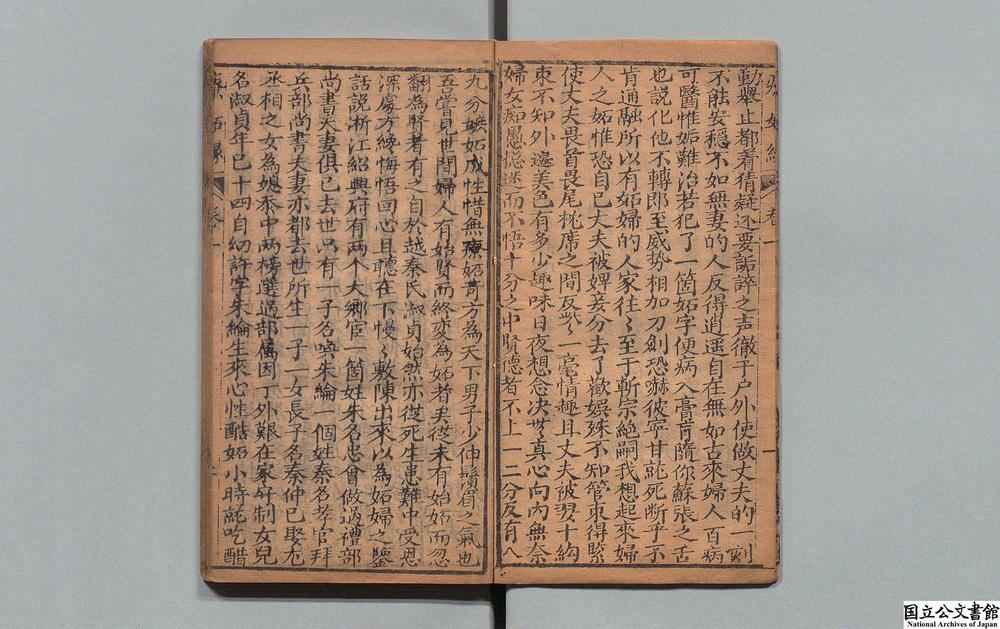 動舉止都着猜疑还要詬誶之声徹于户外使做丈夫的一刻
不能安穏不如無妻的人反得逍遥自在無如古來婦人百病
可醫惟妬難治若犯了一箇妬字便病入膏肓隨你蘇張之舌
也説化他不轉即至威势相加刀劍恐嚇彼寧甘就死断乎不
肯通融所以有妬婦的人家往〻至于斬宗絶嗣我想起來婦
人之妬惟恐自已丈夫被婢妾分去了歡娱殊不知管束得緊
使丈夫畏首畏尾枕席之間反少一毫情趣且丈夫被
束不知外邊美色有多少趣味日夜想念决無真心向内無奈
婦女痴愚執迷而不悟十分之中賢德者不上一二分反有八
九分嫉妬成性惜無療妬竒方為天下男子少伸鬚眉之氣也
吾嘗見世間婦人有始賢而終变為妬者矣從未有始妬而忽
翻為賢者有之自於越秦氏淑貞始然亦從死生患難中受恩
深處方纔悔悟回心且聽在下慢〻敷陳出來以為妬婦之鑒
話説浙江紹興府有两个大鄉宦一箇姓朱名忠曾做過禮部
尚書夫妻俱已去世只有一子名喚朱綸一個姓秦名孝官拜
兵部尚書夫妻亦都去世所生一子一女長子名秦仲已娶尤
丞相之女為媳忝中两榜選過部属因丁外艱在家守制女兒
名淑貞年已十四自幼許字朱綸生來心性酷妬小時就吃醋
卷一
一
国立公文書館
National Archives of Japan